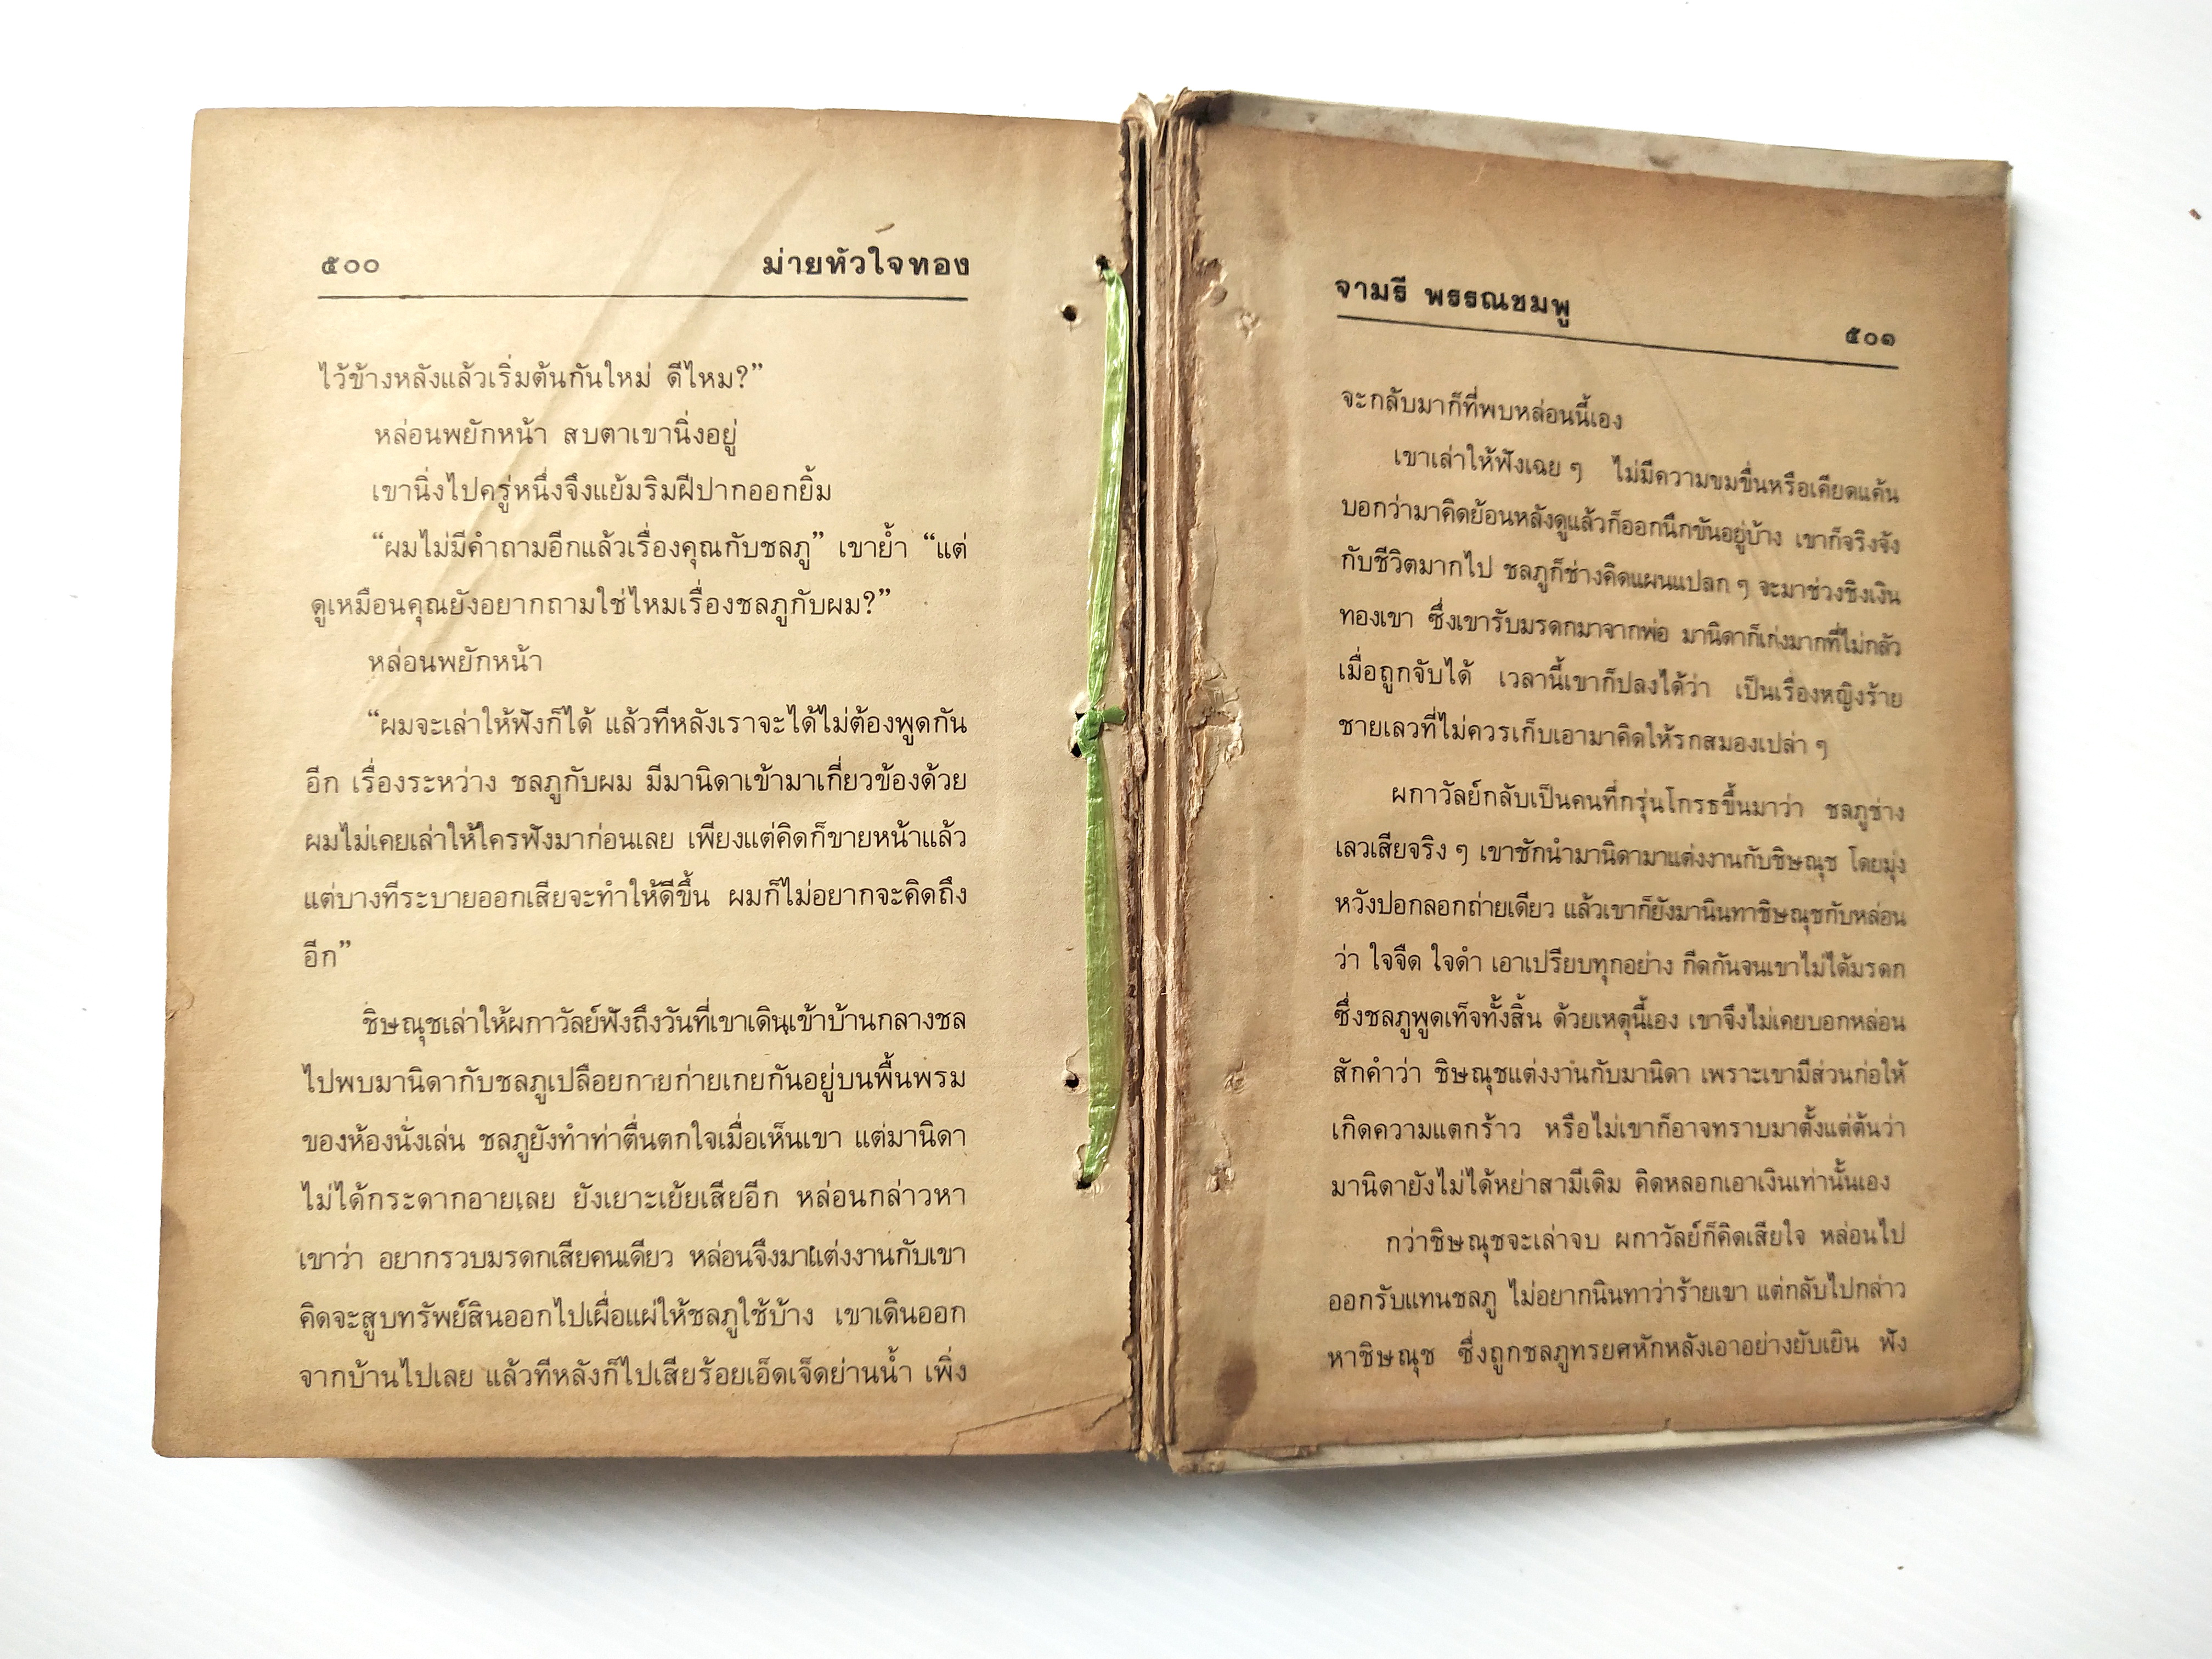 ๕๐๐ ม่ายหัวใจทอง
ไว้ข้างหลังแล้วเริ่มต้นกันใหม่ ดีไหม?”
หล่อนพยักหน้า สบตาเขานิ่งอยู่
เขานิ่งไปครู่หนึ่งจึงแย้มริมฝีปากออกยิ้ม
“ผมไม่มีคำถามอีกแล้วเรื่องคุณกับชลภู” เขาย้ำ “แต่
ดูเหมือนคุณยังอยากถามใช่ไหมเรื่องชลภูกับผม?”
หล่อนพยักหน้า
“ผมจะเล่าให้ฟังก็ได้ แล้วทีหลังเราจะได้ไม่ต้องพูดกัน
อีก เรื่องระหว่าง ชลภูกับผม มีมานิดาเข้ามาเกี่ยวข้องด้วย
ผมไม่เคยเล่าให้ใครฟังมาก่อนเลย เพียงแต่คิดก็ขายหน้าแล้ว
แต่บางทีระบายออกเสียจะทำให้ดีขึ้น ผมก็ไม่อยากจะคิดถึง
อีก”
ชิษณุชเล่าให้ผกาวัลย์ฟังถึงวันที่เขาเดินเข้าบ้านกลางชล
ไปพบมานิดากับชลภูเปลือยกายก่ายเกยกันอยู่บนพื้นพรม
ของห้องนั่งเล่น ชลภูยังทำท่าตื่นตกใจเมื่อเห็นเขา แต่มานิดา
ไม่ได้กระดากอายเลย ยังเยาะเย้ยเสียอีก หล่อนกล่าวหา
เขาว่า อยากรวบมรดกเสียคนเดียว หล่อนจึงมาแต่งงานกับเขา
คิดจะสูบทรัพย์สินออกไปเผื่อแผ่ให้ชลภูใช้บ้าง เขาเดินออก
จากบ้านไปเลย แล้วทีหลังก็ไปเสียร้อยเอ็ดเจ็ดย่านน้ำ เพิ่ง
จามรี พรรณชมพู ๕๐๑
จะกลับมาก็ที่พบหล่อนนี้เอง
เขาเล่าให้ฟังเฉย ๆ ไม่มีความขมขื่นหรือเคียดแค้น
บอกว่ามาคิดย้อนหลังดูแล้วก็ออกนึกขันอยู่บ้าง เขาก็จริงจัง
กับชีวิตมากไป ชลภูก็ช่างคิดแผนแปลก ๆ จะมาช่วงชิงเงิน
ทองเขา ซึ่งเขารับมรดกมาจากพ่อ มานิดาก็เก่งมากที่ไม่กลัว
เมื่อถูกจับได้ เวลานี้เขาก็ปลงได้ว่า เป็นเรื่องหญิงร้าย
ชายเลวที่ไม่ควรเก็บเอามาคิดให้รกสมองเปล่า ๆ
ผกาวัลย์กลับเป็นคนที่กรุ่นโกรธขึ้นมาว่า ชลภูช่าง
เลวเสียจริง ๆ เขาชักนำมานิดามาแต่งงานกับชิษณุช โดยมุ่ง
หวังปอกลอกถ่ายเดียว แล้วเขาก็ยังมานินทาชิษณุชกับหล่อน
ว่า ใจจืด ใจดำ เอาเปรียบทุกอย่าง กีดกันจนเขาไม่ได้มรดก
ซึ่งชลภูพูดเท็จทั้งสิ้น ด้วยเหตุนี้เอง เขาจึงไม่เคยบอกหล่อน
สักคำว่า ชิษณุชแต่งงานกับมานิดา เพราะเขามีส่วนก่อให้
เกิดความแตกร้าว หรือไม่เขาก็อาจทราบมาตั้งแต่ต้นว่า
มานิดายังไม่ได้หย่าสามีเดิม คิดหลอกเอาเงินเท่านั้นเอง
กว่าชิษณุชจะเล่าจบ ผกาวัลย์ก็คิดเสียใจ หล่อนไป
ออกรับแทนชลภู ไม่อยากนินทาว่าร้ายเขา แต่กลับไปกล่าว
หาชิษณุช ซึ่งถูกชลภูทรยศหักหลังเอาอย่างยับเยิน ฟัง